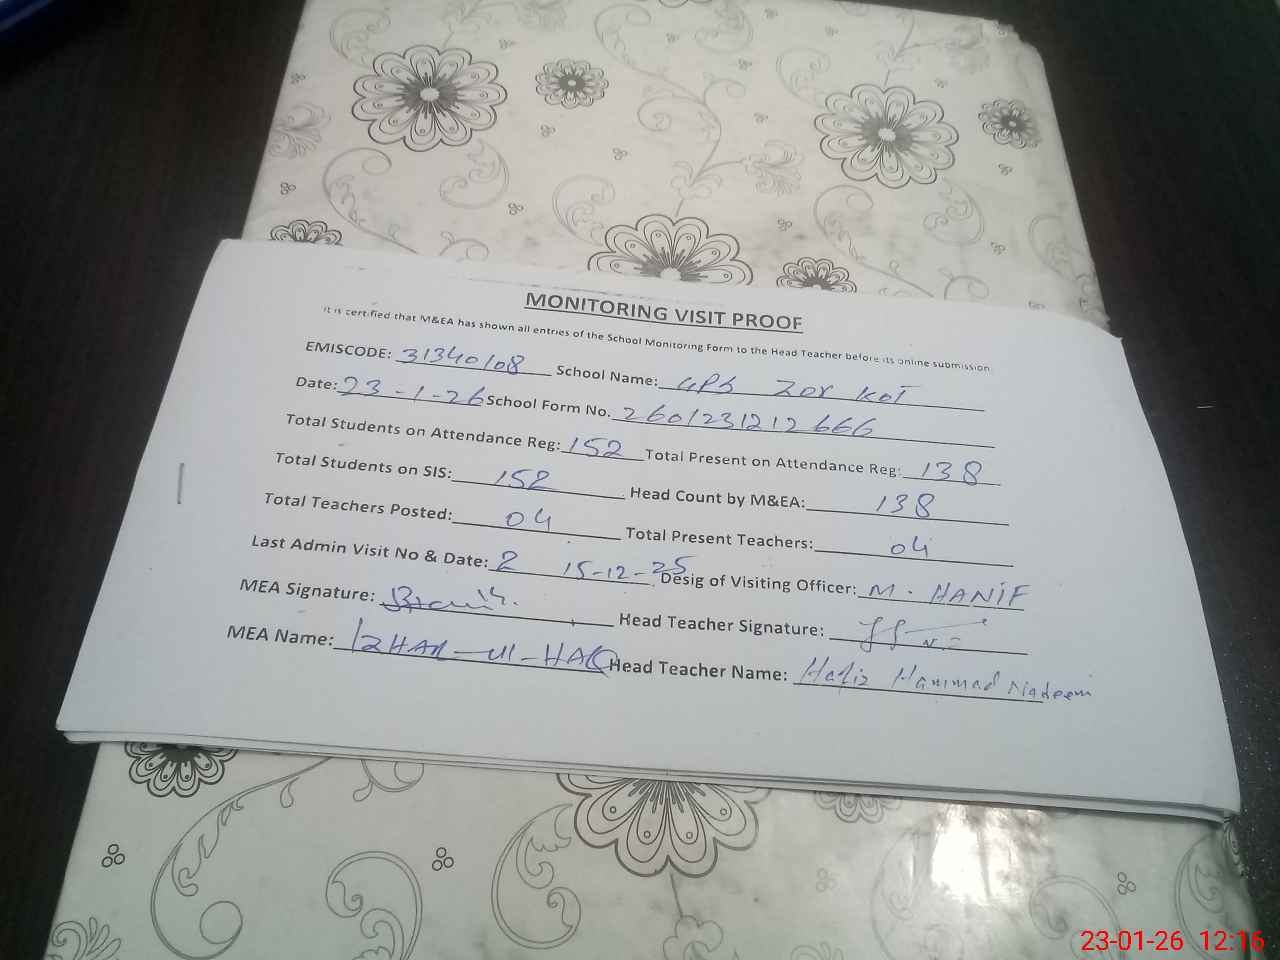 MONITORING VISIT PROOF
It is certified that M&EA has shown all entries of the School Monitoring Form to the Head Teacher before its online submission.
EMISCODE: 31340108 School Name: GPS Zor Kot
Date: 23-1-26 School Form No. 2601231212666
Total Students on Attendance Reg: 152 Total Present on Attendance Reg: 138
Total Students on SIS: 152 Head Count by M&EA: 138
Total Teachers Posted: 04 Total Present Teachers: 04
Last Admin Visit No & Date: 2 15-12-25 Desig of Visiting Officer: M. HANIF
MEA Signature: Head Teacher Signature:
MEA Name: IZHAR-UL-HAQ Head Teacher Name: Hafiz Hammad Nadeem
23-01-26 12:16